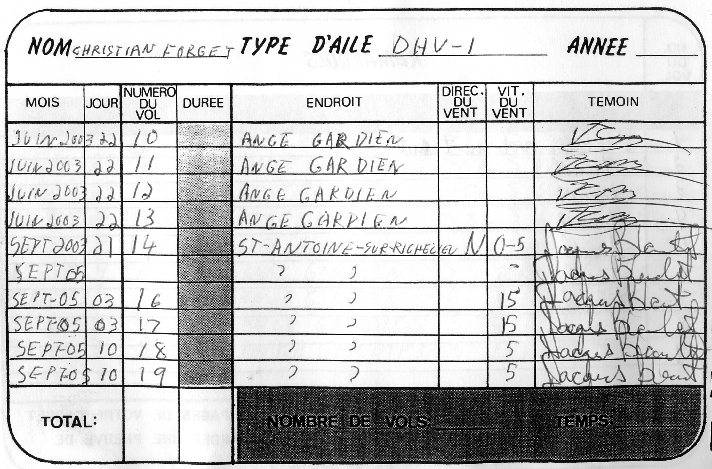 NOM CHRISTIAN FORGET TYPE D'AILE DHV-1 ANNEE
MOIS JOUR NUMERO DU VOL DUREE ENDROIT DIREC. DU VENT VIT. DU VENT TEMOIN
JUIN 2003 22 10 ANGE GARDIEN
JUIN 2003 22 11 ANGE GARDIEN
JUIN 2003 22 12 ANGE GARDIEN
JUIN 2003 22 13 ANGE GARDIEN
SEPT 2003 21 14 ST-ANTOINE-SUR-RICHELIEU N 0-5 Jacques
SEPT 05 " " - Jacques
SEPT-05 03 16 " " 15 Jacques
SEPT-05 03 17 " " 15 Jacques
SEPT-05 10 18 " " 5 Jacques
SEPT-05 10 19 " " 5 Jacques
TOTAL: NOMBRE DE VOLS TEMPS